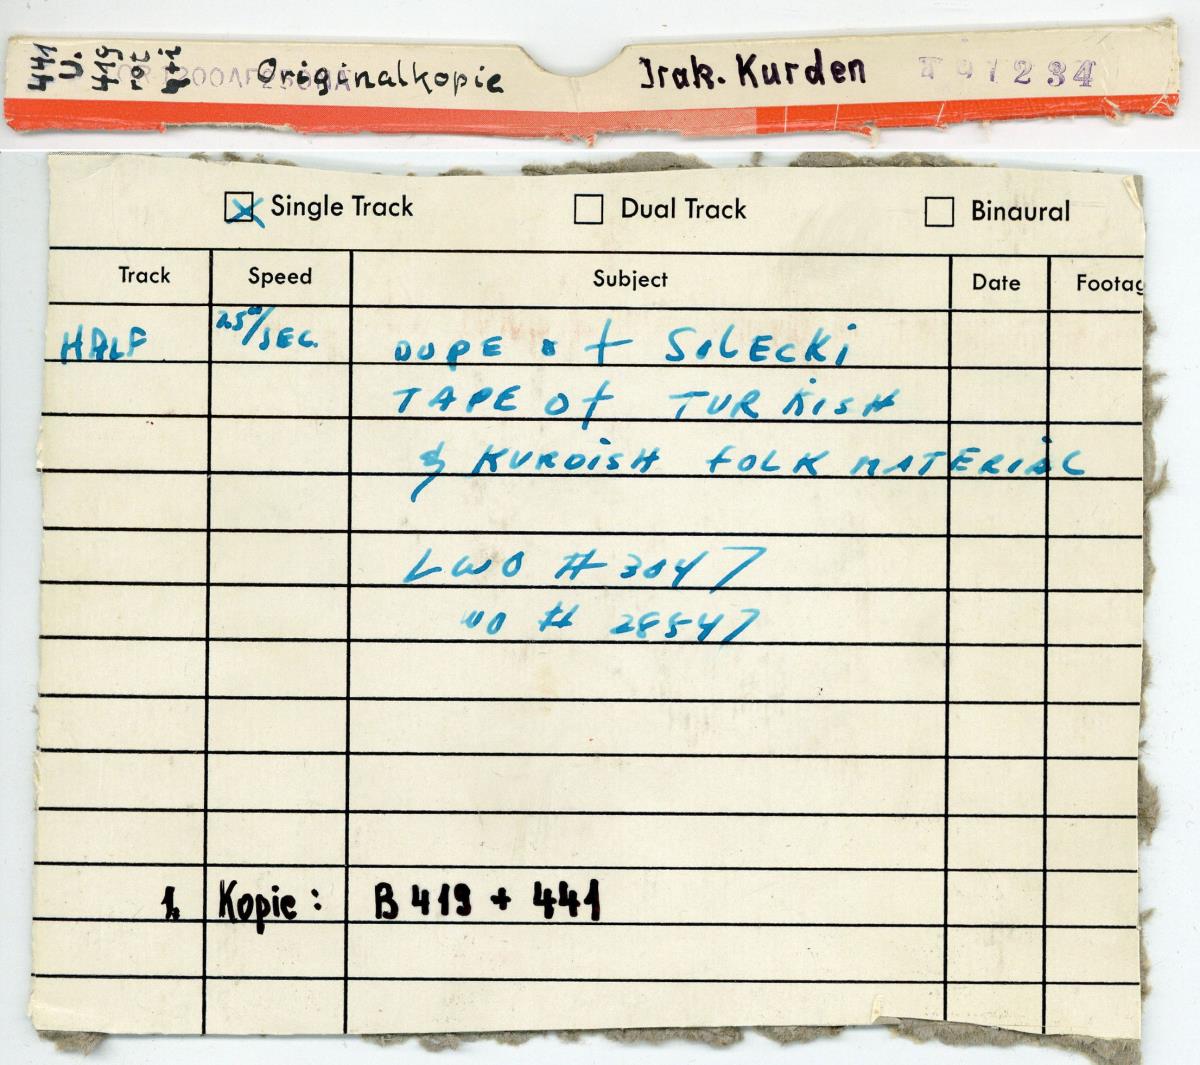 441
U.
419
rot
Originalkopie
Irak. Kurden
T 91234
Single Track
Dual Track
Binaural
Track Speed Subject Date Footag
HALF 7.5"/SEC. DUPE of SOLECKi
TAPE Of TURKiSH
& KURDiSH fOLK MATERiAL
LWO # 3047
# 28547
1. Kopie: B 419 + 441